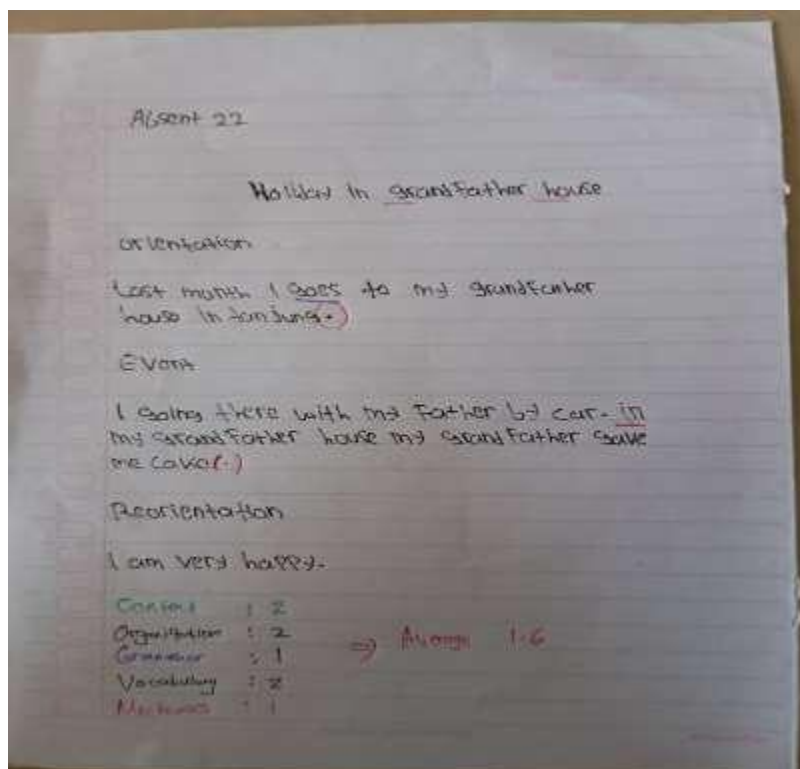 Absent 22
Holiday in grandfather house
orientation
Last month I goes to my grandfather
house in tanjung(.)
Event
I going there with my father by car. in
my grandfather house my grandfather gave
me cake(.)
Reorientation
I am very happy.
Content : 2
Organization : 2
Grammar : 1
Vocabulary : 2
Mechanics : 1
⇒ Average 1.6